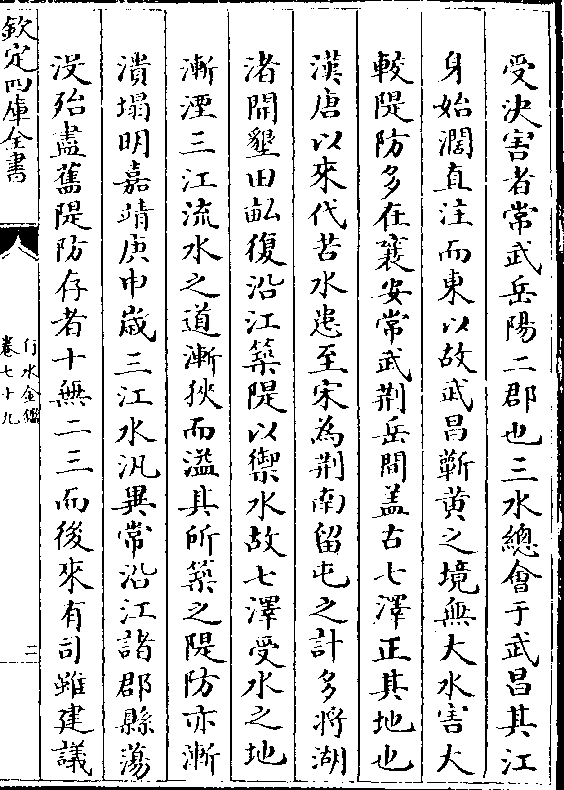 受決害者常武岳陽二郡也三水總會于武昌其江
身始濶直注而東以故武昌蘄黄之境無大水害大
較隄防多在襄安常武荆岳間盖古七澤正其地也
漢唐以來代苦水患至宋為荆南留屯之計多將湖
渚開墾田畝復沿江築隄以禦水故七澤受水之地
漸湮三江流水之道漸狹而溢其所築之隄防亦漸
潰塌明嘉靖庚申歳三江水汎異常沿江諸郡縣蕩
沒殆盡舊隄防存者十無二三而後來有司雖建議
欽定四庫全書
行水金鑑
卷七十九
二